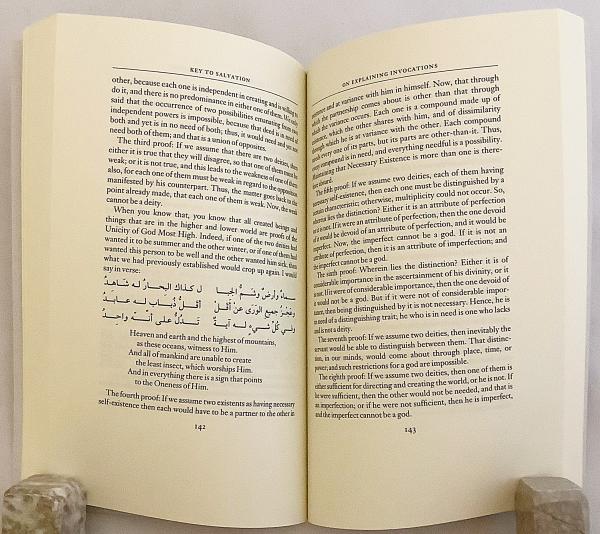 KEY TO SALVATION
other, because each one is independent in creating and is willing to
do it, and there is no predominance in either one of them. We only
said that the occurrence of two possibilities emanating from two
powers is impossible, because that deed is in need of
both and yet is in no need of both; thus, it would need and not
need both of them; and that is a union of opposites.
The third proof: If we assume that there are two deities, then
either it is true that they will disagree, so that one of them must be
weak; or it is not true, and this leads to the weakness of one of them
also, for each one of them must be weak in regard to the opposition
manifested by his counterpart. Thus, the matter goes back to the
point already made, that each one of them is weak. Now, the weak
cannot be a deity.
When you know that, you know that all created beings and
things that are in the higher and lower world are proofs of the
Unicity of God Most High. Indeed, if one of the two deities had
wanted it to be summer and the other winter, or if one of them had
wanted this person to be well and the other wanted him sick, then
what we had previously established would crop up again. I would
say in verse:
سماءٌ وأرضٌ وشُمُّ الجبا ل كذاك البحارُ له شاهدُ
وعَجْزُ جميع الوَرَى عنْ أقلْ أقلُّ ذبابٍ له عابدُ
وفي كُلِّ شيءٍ له آيةٌ تدلُّ على أنَّه واحدُ
Heaven and earth and the highest of mountains,
as these oceans, witness to Him.
And all of mankind are unable to create
the least insect, which worships Him.
And in everything there is a sign that points
to the Oneness of Him.
The fourth proof: If we assume two existents as having necessary
self-existence then each would have to be a partner to the other in
142
ON EXPLAINING INVOCATIONS
existence and at variance with him in himself. Now, that through
which the partnership comes about is other than that through
which the variance occurs. Each one is a compound made up of
existence, which the other shares with him, and of dissimilarity
through which he is at variance with the other. Each compound
needs every one of its parts, but its parts are other-than-it. Thus,
every compound is in need, and everything needful is a possibility.
Maintaining that Necessary Existence is more than one is there-
fore absurd.
The fifth proof: If we assume two deities, each of them having
necessary self-existence, then each one must be distinguished by a
certain characteristic; otherwise, multiplicity could not occur. So,
wherein lies the distinction? Either it is an attribute of perfection
or it is not. If it were an attribute of perfection, then the one devoid
of it would be devoid of an attribute of perfection, and it would be
imperfect. Now, the imperfect cannot be a god. If it is not an
attribute of perfection, then it is an attribute of imperfection; and
the imperfect cannot be a god.
The sixth proof: Wherein lies the distinction? Either it is of
considerable importance in the ascertainment of his divinity, or it
is not. If it were of considerable importance, then the one devoid of
it would not be a god. But if it were not of considerable impor-
tance, then being distinguished by it is not necessary. Hence, he is
in need of a distinguishing trait; he who is in need is one who lacks
and is not a deity.
The seventh proof: If we assume two deities, then inevitably the
servant would be able to distinguish between them. That distinc-
tion, in our minds, would come about through place, time, or
power; and such restrictions for a god are impossible.
The eighth proof: If we assume two deities, then one of them is
either sufficient for directing and creating the world, or he is not. If
he were sufficient, then the other would not be needed, and that is
an imperfection; or if he were not sufficient, then he is imperfect,
and the imperfect cannot be a god.
143